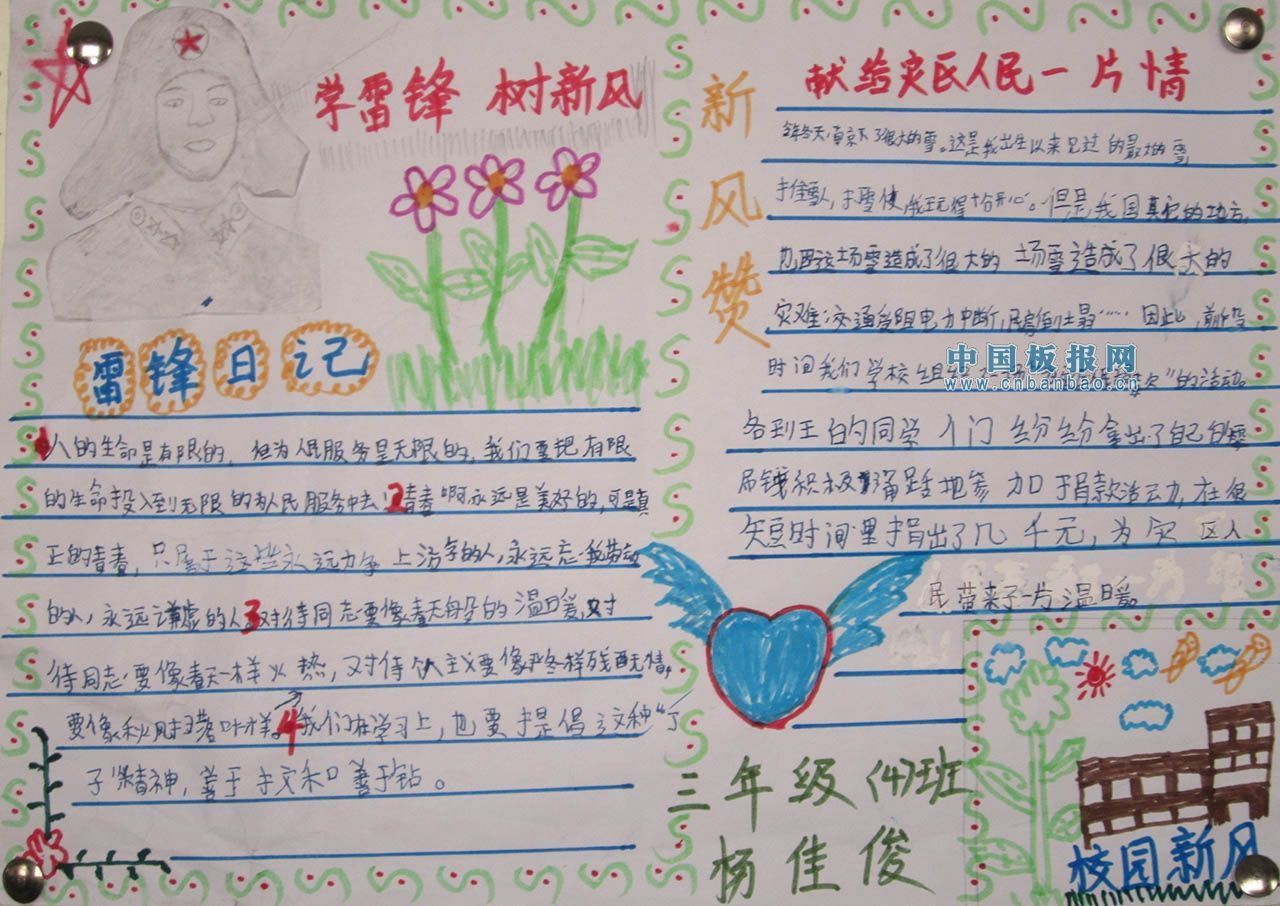 学雷锋 树新风
雷锋日记
人的生命是有限的，但为人民服务是无限的，我们要把有限
的生命投入到无限的为人民服务中去 2青春啊永远是美好的，可是真
正的青春，只属于这些永远力争上游的人，永远忘我劳动
的人，永远谦虚的人 3对待同志要像春天般的温暖，对
待同志要像春天一样火热，对待个人主义要像严冬一样残酷无情，
要像秋风扫落叶一样。4我们在学习上，也要提倡这种“丁
子”精神，善于挤和善于钻。
新风赞
献给灾区人民一片情
今年冬天，南京下了很大的雪。这是我出生以来见过的最大的雪，
堆雪人，打雪仗，我玩得十分开心。但是我国其它的地方，
也因这场雪造成了很大的 场雪造成了很大的
灾难：交通受阻电力中断，民房倒塌……因此，前段
时间我们学校组织了 ”的活动。
各班的同学们纷纷拿出了自己的零
用钱积极踊跃地参加了捐款活动，在很
短时间里捐出了几千元，为灾区人
民带来了一片温暖。
中国板报网
www.cnbanbao.cn
三年级（4）班
杨佳俊
校园新风